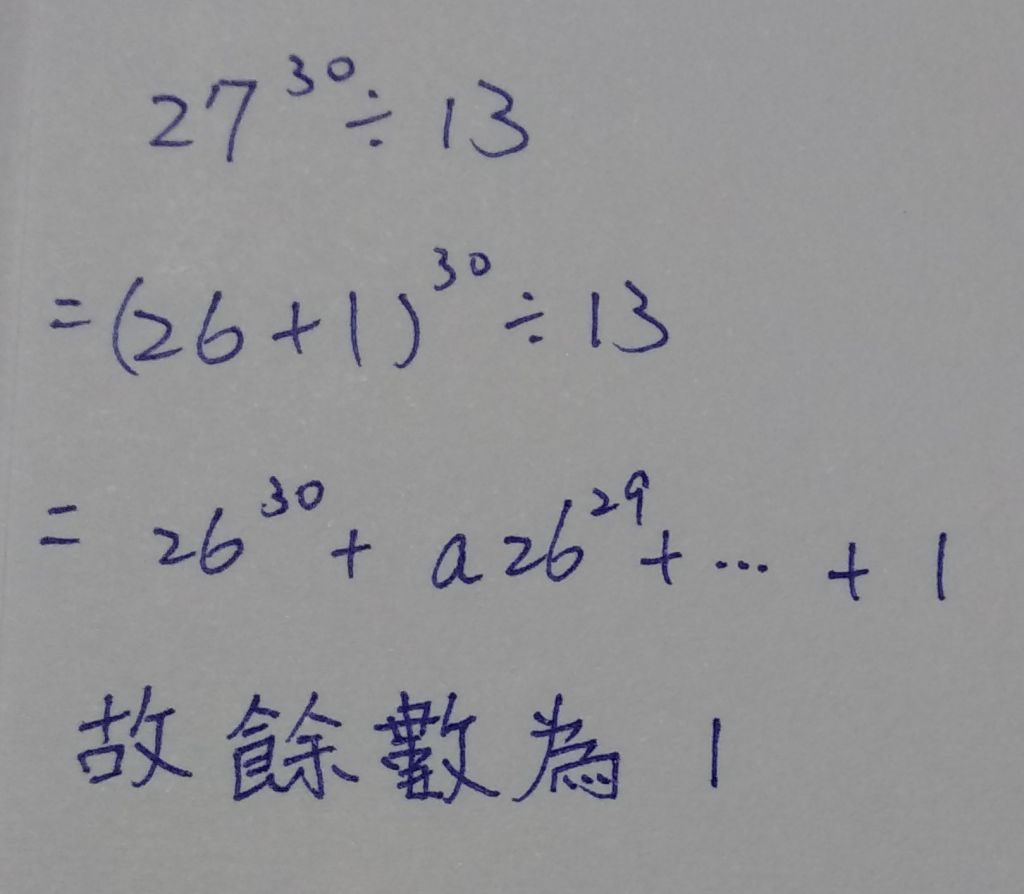 27³⁰ ÷ 13
= (26 + 1)³⁰ ÷ 13
= 26³⁰ + a26²⁹ + ... + 1
故餘數為 1